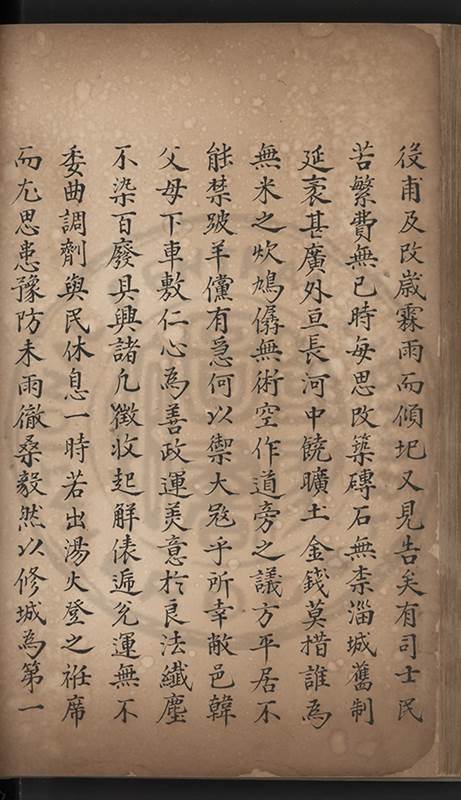 役甫及改歲霖雨而傾圯又見告矣有司士民
苦繁費無已時每思改築磚石無柰淄城舊制
延袤甚廣外亘長河中饒曠土金錢莫措誰為
無米之炊鳩僝無術空作道旁之議方平居不
能禁跛羊儻有急何以禦大寇乎所幸敝邑韓
父母下車敷仁心為善政運美意於良法纖塵
不染百廢具興諸凡徵收起解俵遞兌運無不
委曲調劑與民休息一時若出湯火登之袵席
而尤思患豫防未雨徹桑毅然以修城為第一